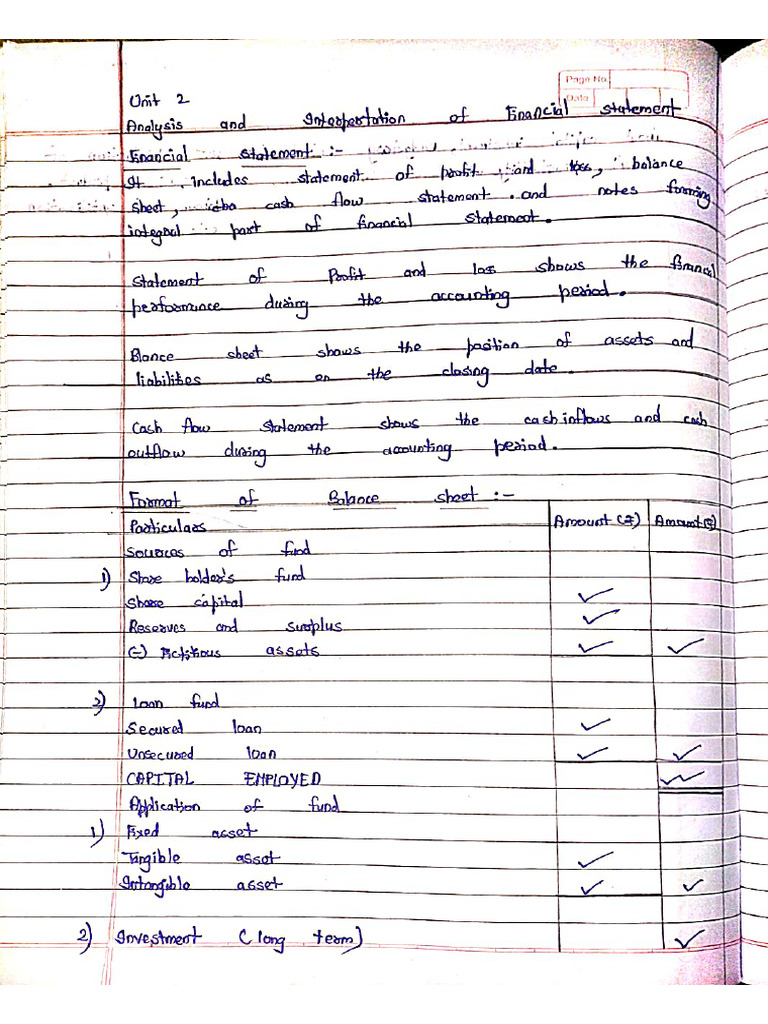 Page No
Date
Unit 2
Analysis and Interpertation of Financial statement
Financial statement :-
It includes statement of profit and loss, balance
sheet, cash flow statement . and notes forming
integral part of financial statement.
Statement of Profit and loss shows the financial
performance during the accounting period.
Blance sheet shows the position of assets and
liabilities as on the closing date.
Cash flow statement shows the cash inflows and cash
outflow during the accounting period.
Format of Balance sheet :-
Particulars Amount (₹) Amount (₹)
Sources of fund
1) Share holder's fund
Share capital ✓
Reserves and surplus ✓
(-) Fictitious assets ✓ ✓
2) Loan fund
Secured loan ✓
Unsecured loan ✓ ✓
CAPITAL EMPLOYED ✓✓
Application of fund
1) Fixed asset
Tangible asset ✓
Intangible asset ✓ ✓
2) Investment (long term) ✓